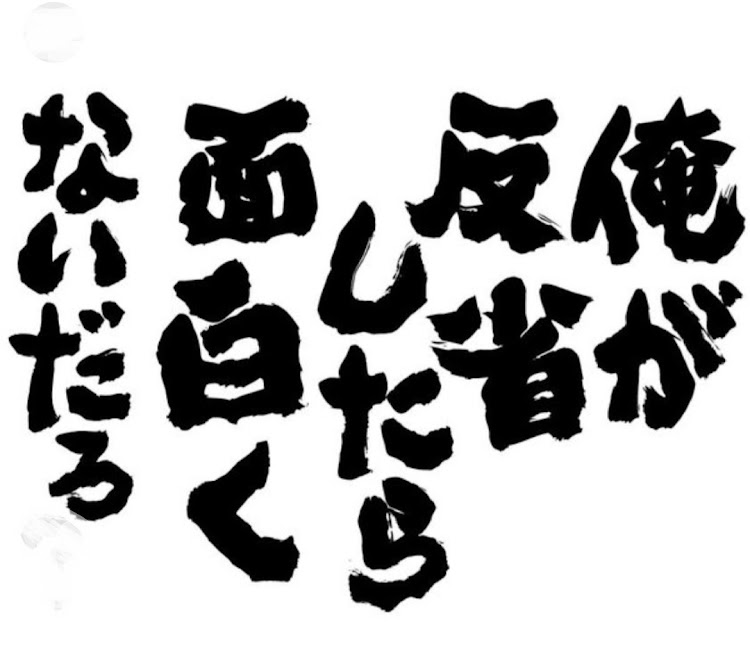 俺が
反省
したら
面白く
ないだろ